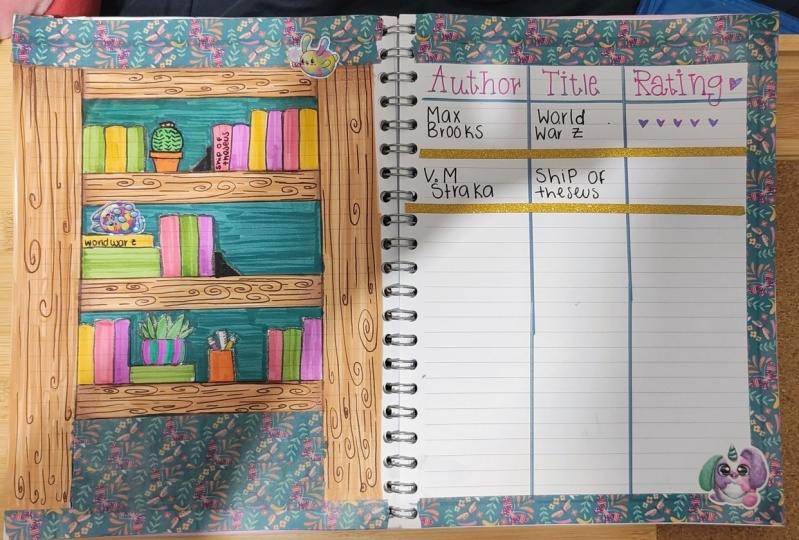 ship of
theseus
world war z
Author Title Rating
Max
Brooks
World
War Z
V.M
Straka
Ship of
theseus